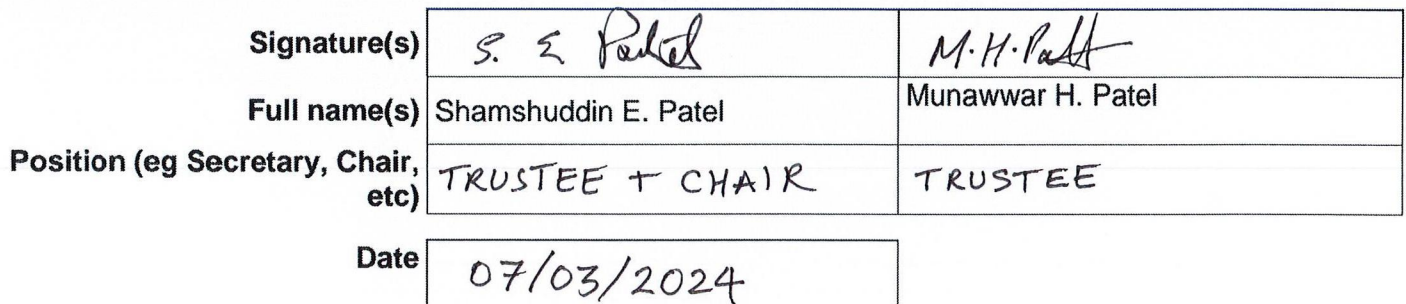 Signature(s) S. E Patel M.H.Patel
Full name(s) Shamshuddin E. Patel Munawwar H. Patel
Position (eg Secretary, Chair, etc) TRUSTEE + CHAIR TRUSTEE
Date 07/03/2024